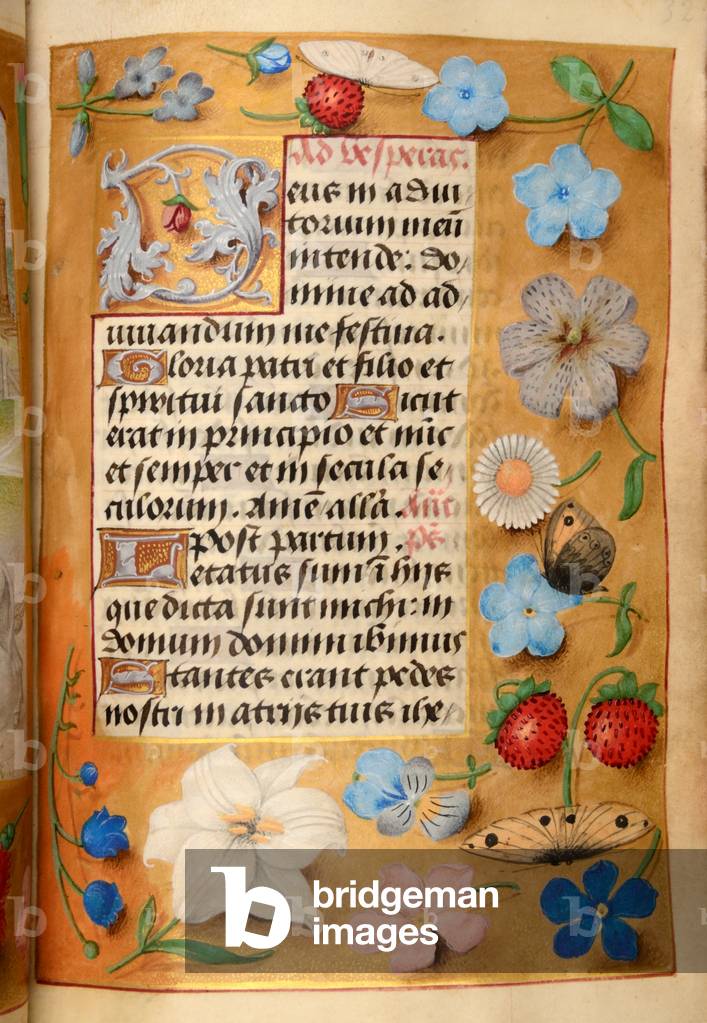 Ad vesperas.
Deus in adiu
torium meū
intende: Do/
mine ad ad/
iuuandum me festina.
Gloria patri et filio et
spiritui sancto Sicut
erat in principio et nūc
et semper et in secula se/
culorum. Amē allā. Añ
post partum. ps̄
Letatus sum ī hijs
que dicta sunt michi: in
domum domini ibimus
Stantes erant pedes
nostri in atrijs tuis ihe/
bridgeman
images